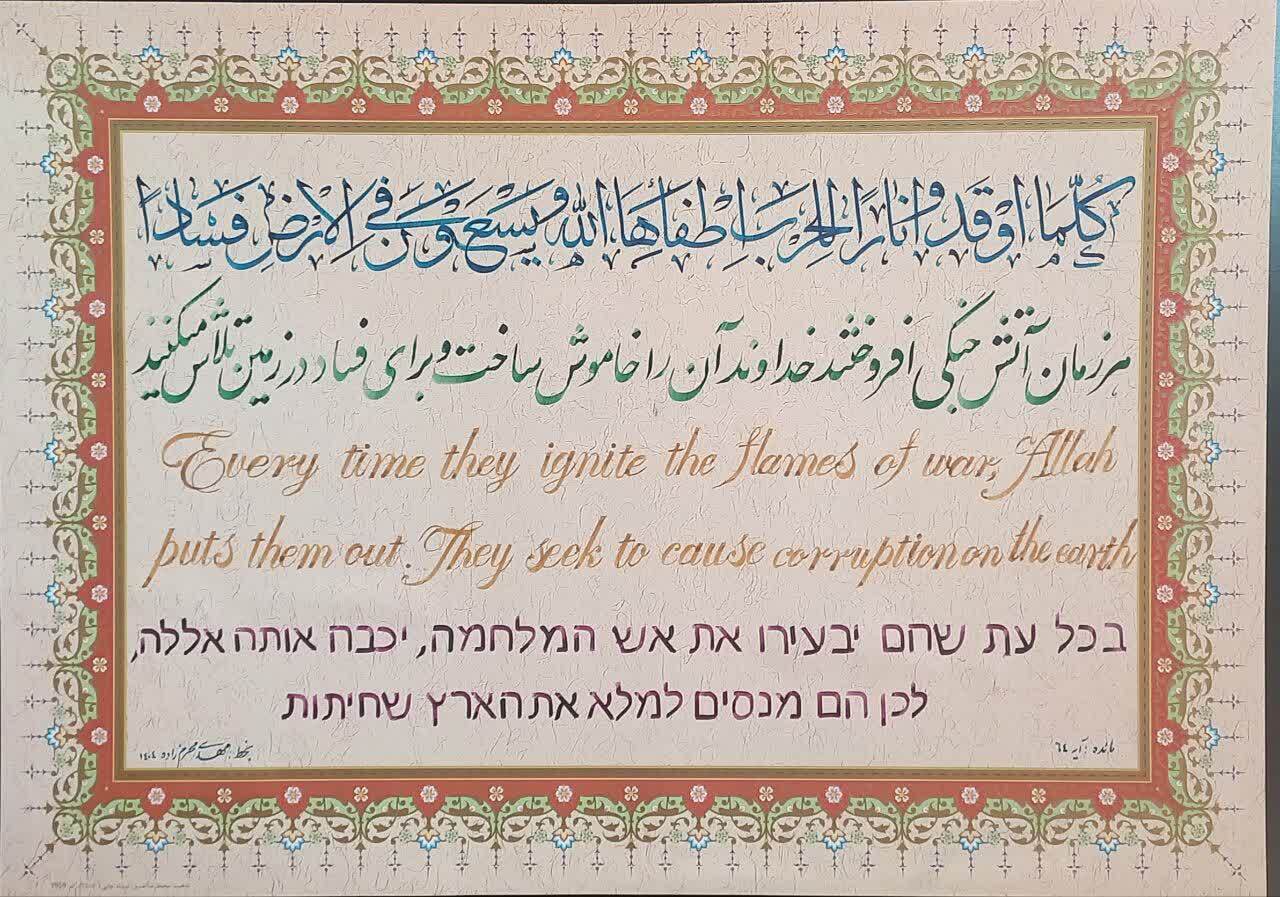 كُلَّمَا اَوْقَدوُا نَارًا لِلْحَرْبِ اَطْفَأَهَا اللهُ وَيَسْعَوْنَ فِي الْاَرْضِ فَسَادًا
هر زمان آتش جنگی افروختند خداوند آن را خاموش ساخت و برای فساد در زمین تلاش میکنند
Every time they ignite the flames of war, Allah
puts them out. They seek to cause corruption on the earth
בכל עת שהם יבעירו את אש המלחמה, יכבה אותה אללה,
לכן הם מנסים למלא את הארץ שחיתות
مائده : آیه ٦٤
بخط : مهدی محرم زاده ١٤٠٤